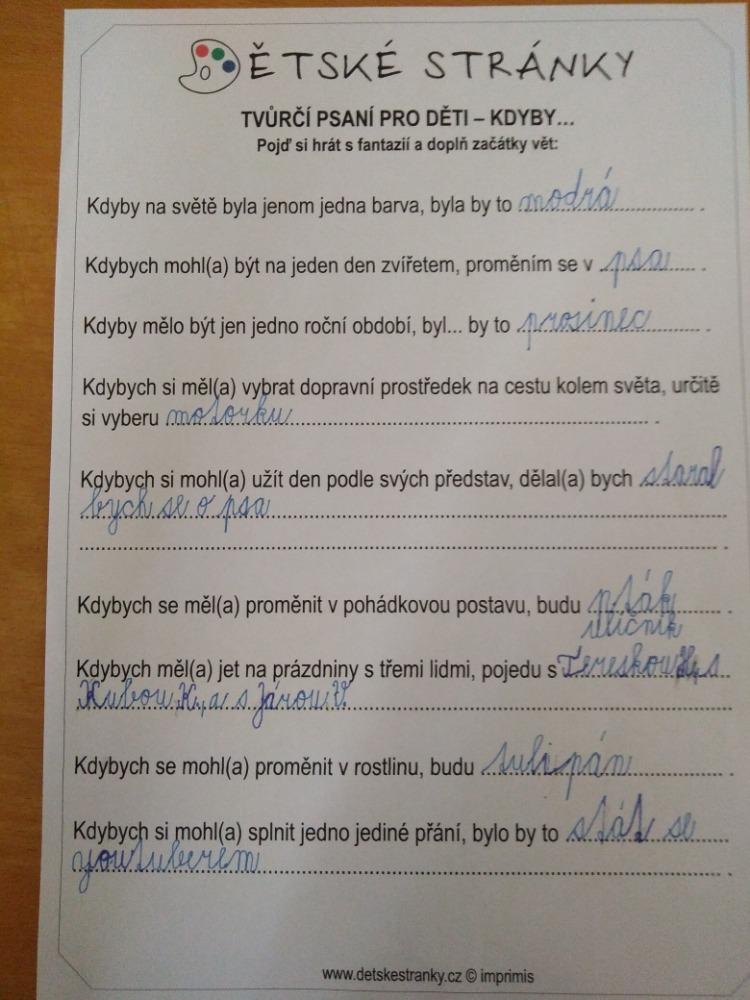 ĚTSKÉ STRÁNKY
TVŮRČÍ PSANÍ PRO DĚTI – KDYBY...
Pojď si hrát s fantazií a doplň začátky vět:
Kdyby na světě byla jenom jedna barva, byla by to modrá.
Kdybych mohl(a) být na jeden den zvířetem, proměním se v psa.
Kdyby mělo být jen jedno roční období, byl... by to prosinec.
Kdybych si měl(a) vybrat dopravní prostředek na cestu kolem světa, určitě
si vyberu motorku.
Kdybych si mohl(a) užít den podle svých představ, dělal(a) bych staral
bych se o psa
Kdybych se měl(a) proměnit v pohádkovou postavu, budu pták.
uličník
Kdybych měl(a) jet na prázdniny s třemi lidmi, pojedu s Tereskou H, s
Kubou K, a s Járou V.
Kdybych se mohl(a) proměnit v rostlinu, budu tulipán.
Kdybych si mohl(a) splnit jedno jediné přání, bylo by to stát se
youtuberem
www.detskestranky.cz © imprimis